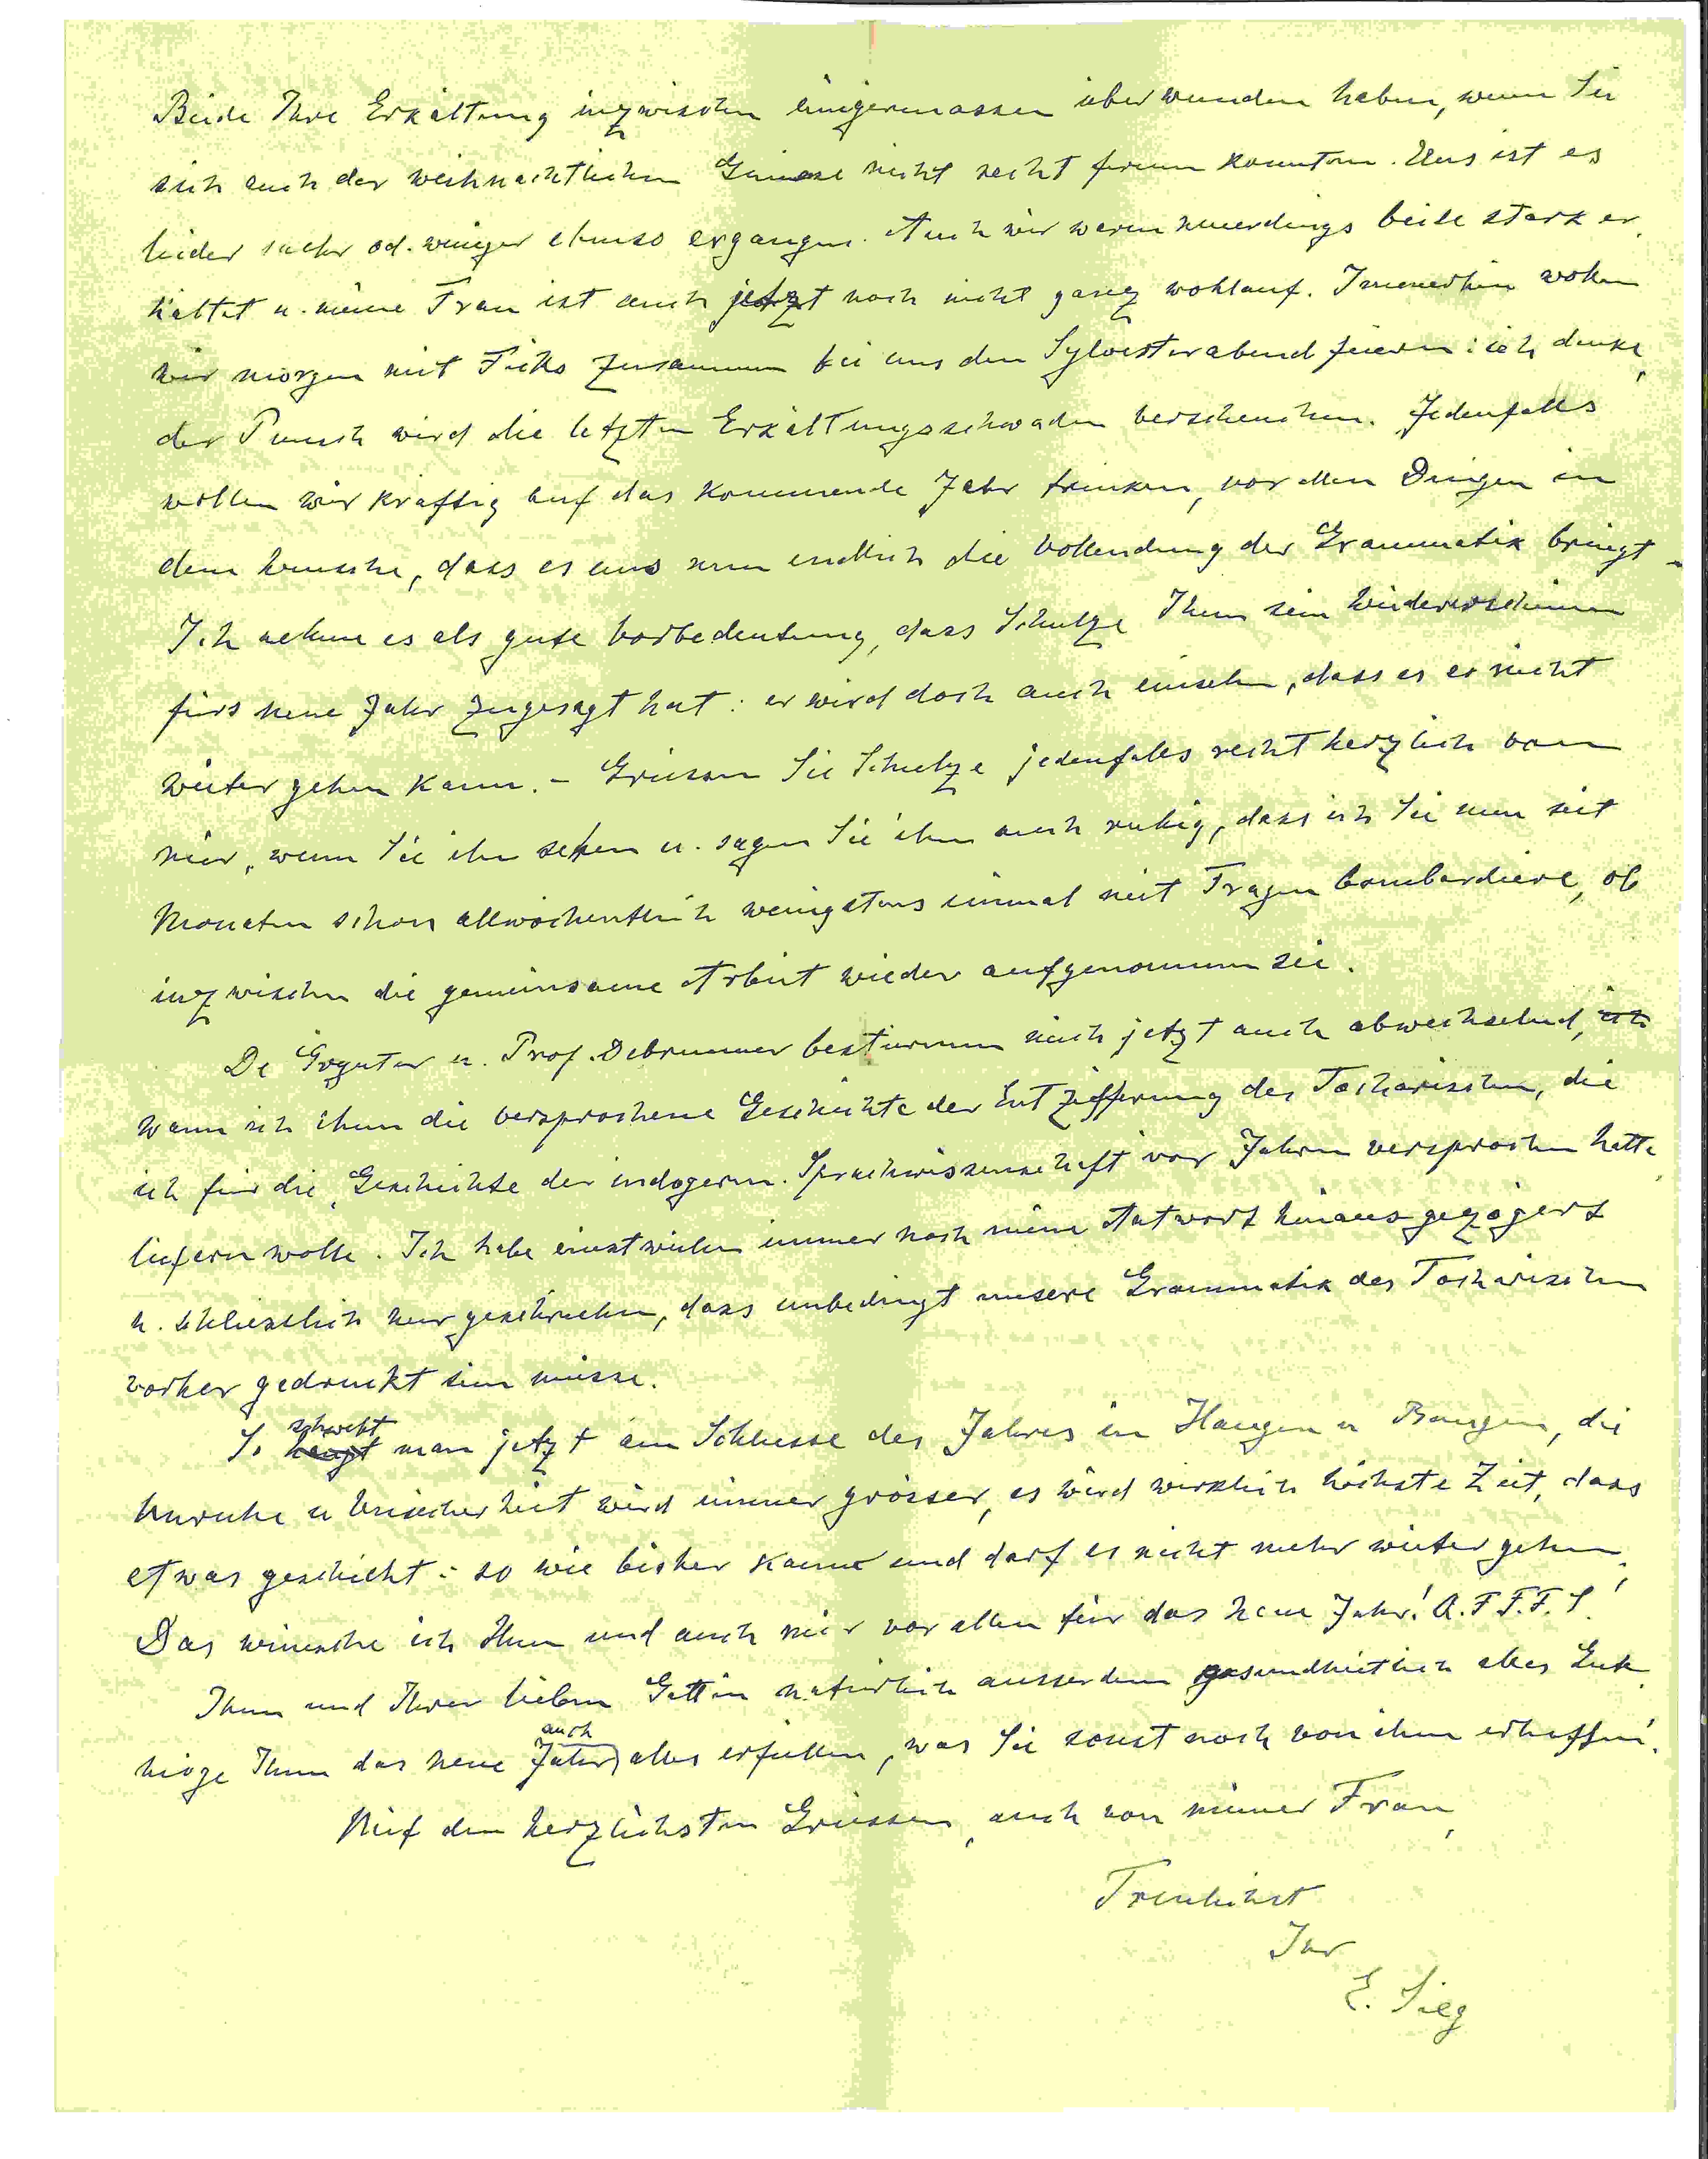 Beide Ihre Erkältung inzwischen einigermassen überwunden haben, wenn Sie
sich auch der weihnachtlichen Genüsse nicht recht freuen konnten. Uns ist es
leider mehr od. weniger ebenso ergangen. Auch wir waren neuerdings beide stark er-
kältet u. meine Frau ist auch jetzt noch nicht ganz wohlauf. Immerhin wollen
wir morgen mit Ficks zusammen bei uns den Sylvesterabend feiern: ich denke,
der Punsch wird die letzten Erkältungsschwaden verscheuchen. Jedenfalls
wollen wir kräftig auf das kommende Jahr trinken, vor allen Dingen in
dem Wunsche, dass es uns nun endlich die Vollendung der Grammatik bringt.
Ich nehme es als gute Vorbedeutung, dass Schulze Ihnen sein Wiedererscheinen
fürs neue Jahr zugesagt hat: er wird doch auch einsehen, dass es so nicht
weiter gehen kann. – Grüssen Sie Schulze jedenfalls recht herzlich von
mir, wenn Sie ihn sehen u. sagen Sie ihm auch ruhig, dass ich Sie nun seit
Monaten schon allwöchentlich wenigstens einmal mit Fragen bombardiere, ob
inzwischen die gemeinsame Arbeit wieder aufgenommen sei.
De Gruyter u. Prof. Debrunner bestürmen mich jetzt auch abwechselnd, ich
wann ich ihnen die versprochene Geschichte der Entzifferung des Tocharischen, die
ich für die Geschichte der indogerm. Sprachwissenschaft vor Jahren versprochen hatte,
liefern wolle. Ich habe einstweilen immer noch meine Antwort hinausgezögert
u. schliesslich nur geschrieben, dass unbedingt unsere Grammatik des Tocharischen
vorher gedruckt sein müsse.
So hängt schwebt man jetzt am Schlusse des Jahres in Hangen u Bangen, die
Unruhe u Unsicherheit wird immer grösser, es wird wirklich höchste Zeit, dass
etwas geschieht: so wie bisher kann und darf es nicht mehr weiter gehen.
Das wünsche ich Ihnen und auch mir vor allem für das neue Jahr! Q.F.F.F.S!
Ihnen und Ihrer lieben Gattin natürlich ausserdem gesundheitlich alles Gute,
möge Ihnen das neue Jahr auch alles erfüllen, was Sie sonst noch von ihm erhoffen!
Mit den herzlichsten Grüssen, auch von meiner Frau,
Treulichst
Ihr
E. Sieg